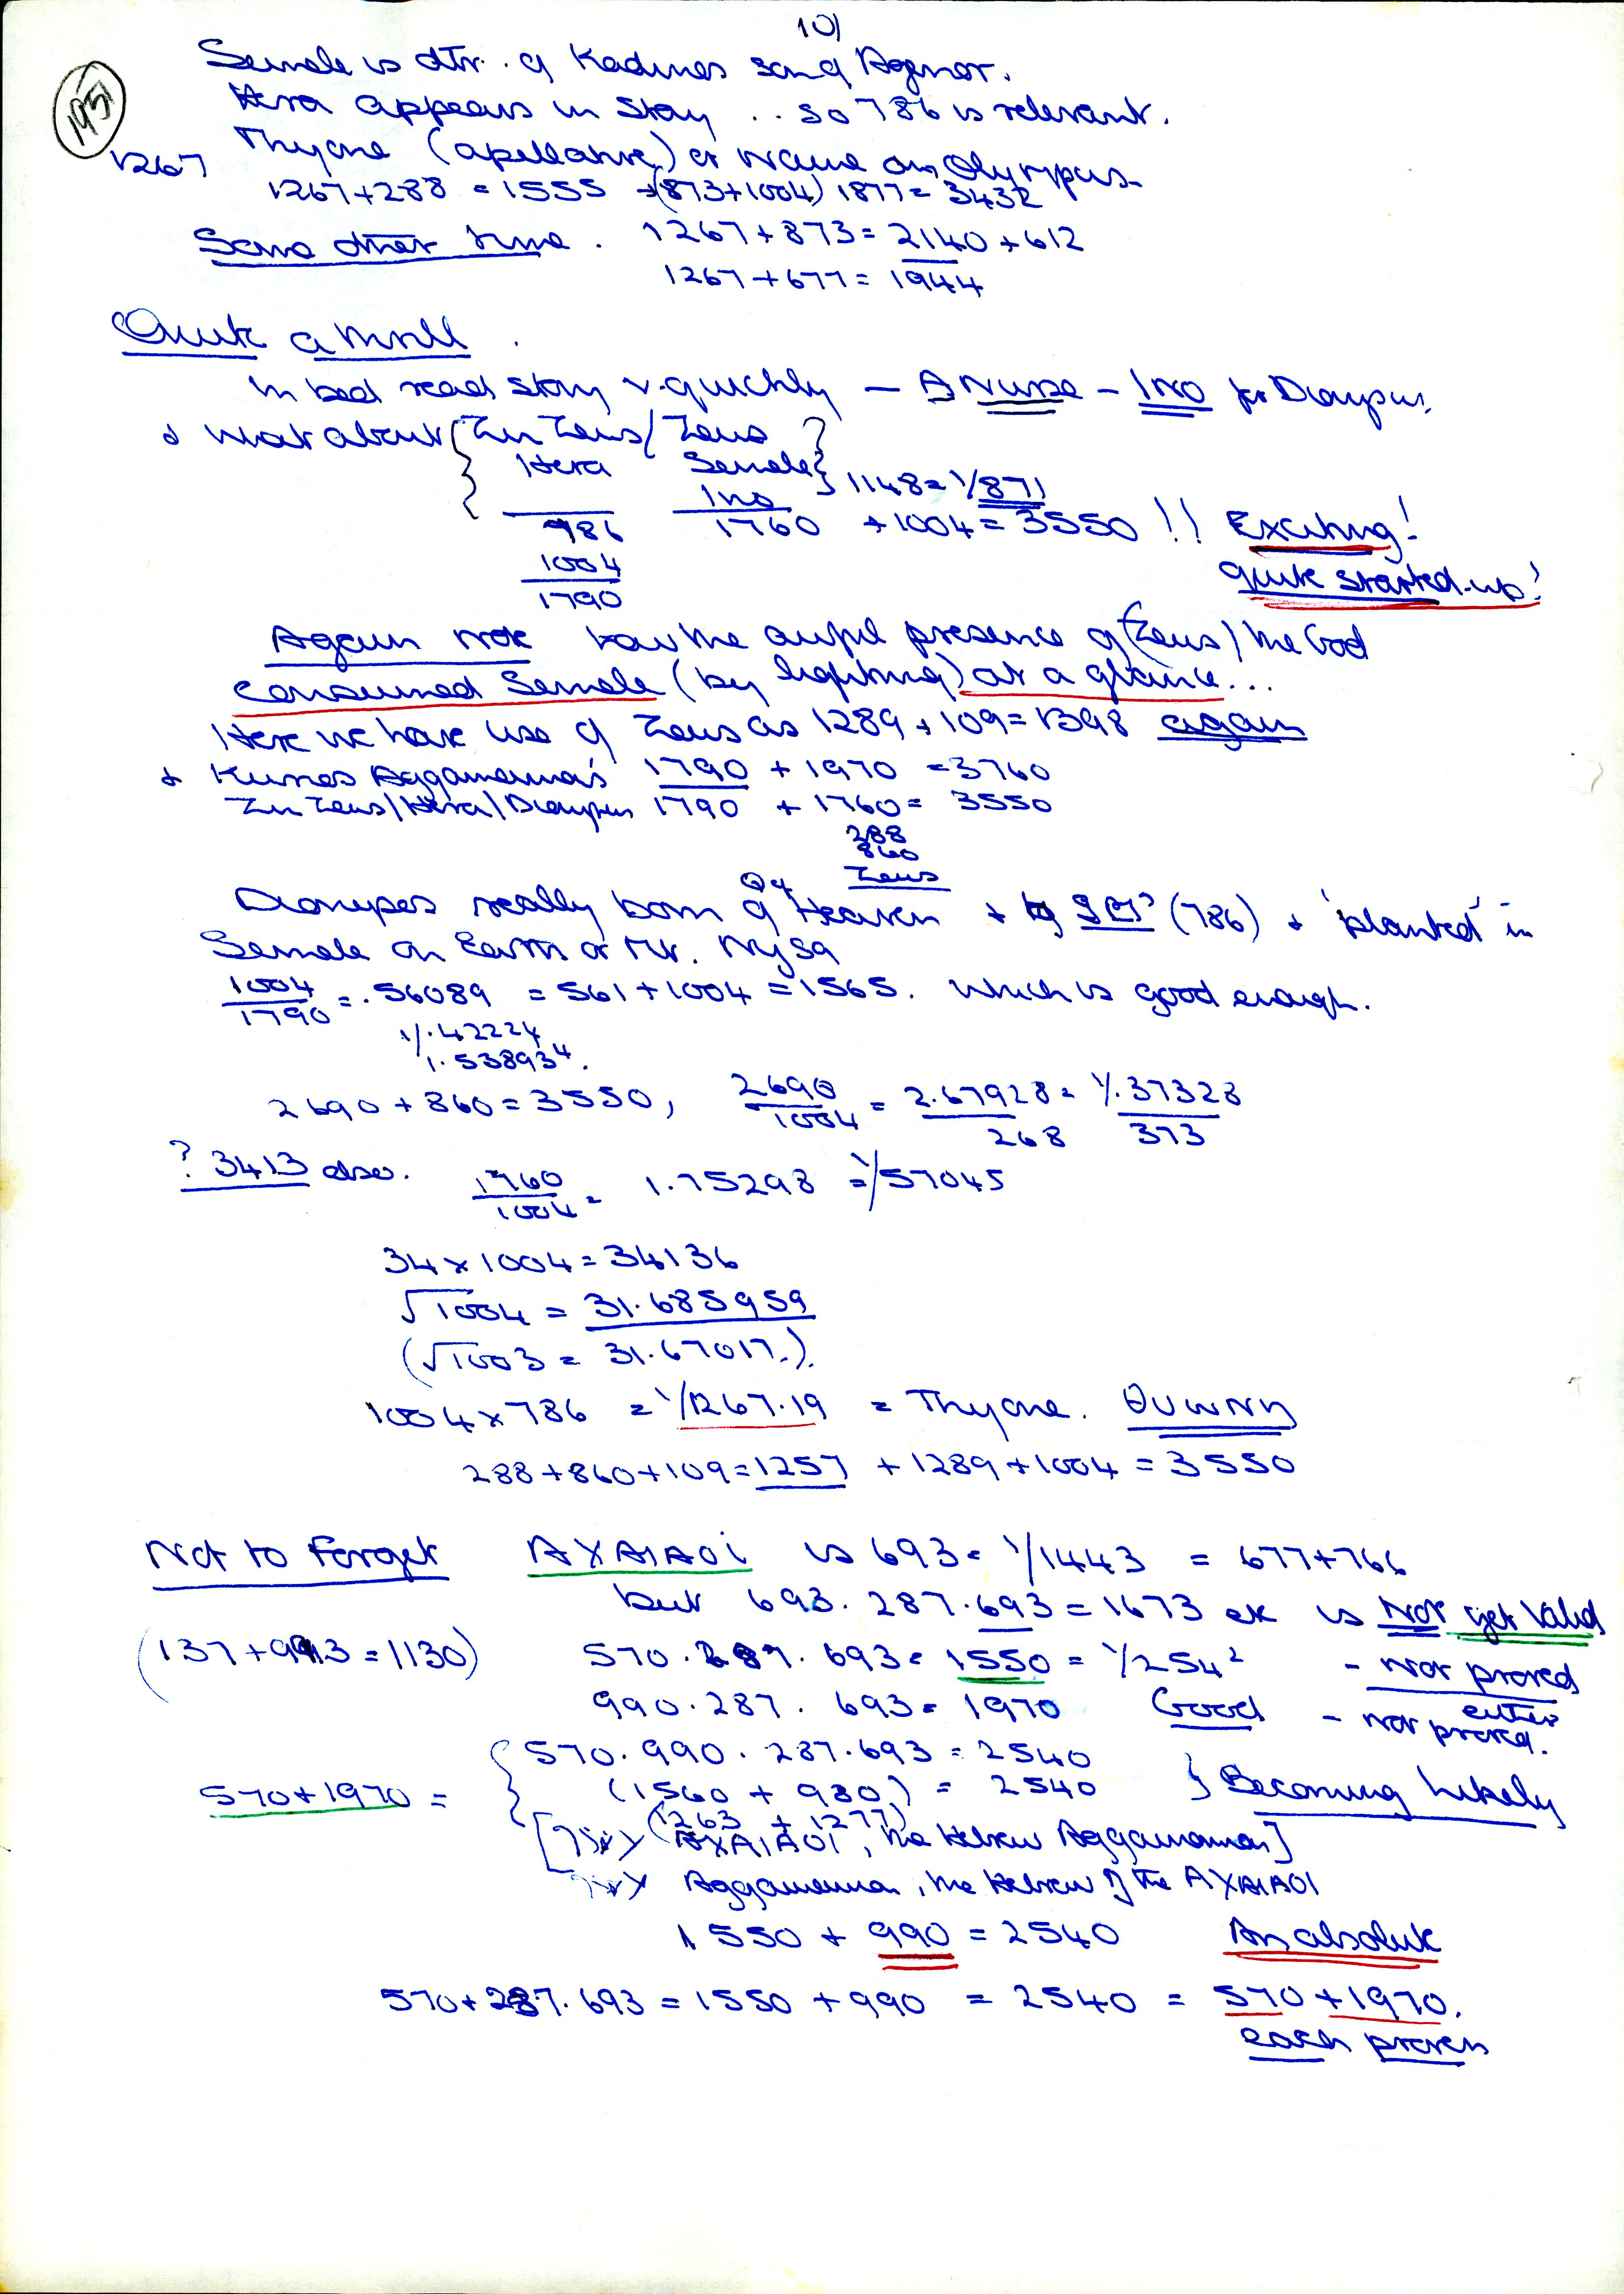 10)
195
Semele is dtr. of Kadmos son of Agenor.
Hera appears in Story .. so 786 is relevant.
Thyone (apellative) or Name on Olympus.
1267
1267+288 = 1555 +(873+1004) 1877 = 3432
Some other time. 1267+873 = 2140+612
1267+677 = 1944
Quite a thrill.
In bed read story v. quickly — A Nurse — Ino for Dionysus.
& what about Zeus/Zeus
Hera Semele
Ino 1148 = 1/871
786 1760 +1004 = 3550 !! Exciting!
1004
1790
quite started-up!
Again note how the awful presence of (Zeus) the God
consumed Semele (by lighting) at a glance...
Here we have use of Zeus as 1289+109=1398 again
& Agamemnon's 1790 + 1970 = 3760
Zeus/Hera/Dionysus 1790 + 1760 = 3550
288
860
Zeus
Dionysos really born of Q of Heaven + (786) + 'planted' in
Semele on Earth or Mt. Nysa
1004/1790 = .56089 = 561+1004 = 1565. which is good enough.
1/.42224
1.53893⁴.
2690 + 860 = 3550, 2690/1004 = 2.67928 = 1/.37323
268 373
? 3413 also. 1760/1004 = 1.75298 = 1/57045
34 x 1004 = 34136
√1004 = 31.685959
(√1003 = 31.67017.).
1004 x 786 = 1/1267.19 = Thyone. θυωνη
288+860+109=1257 +1289+1004 = 3550
Not to Forget AXAIAOi is 693 = 1/1443 = 677+766
but 693. 287. 693 = 1673 etc is Not yet Valid
(137+993=1130) 570. 287. 693 = 1550 = 1/254² - not proved
990. 287. 693 = 1970 Good - not proved either.
570. 990. 287. 693 = 2540
570+1970 = (1560 + 980) = 2540 } Becoming likely
(1263 + 1277)
[ AXAIAOI, the Hebrew Aggamemnon]
Aggamemnon, the Hebrew of the AXAIAOI
1550 + 990 = 2540 An absolute
570+287. 693 = 1550 + 990 = 2540 = 570 + 1970.
each proven